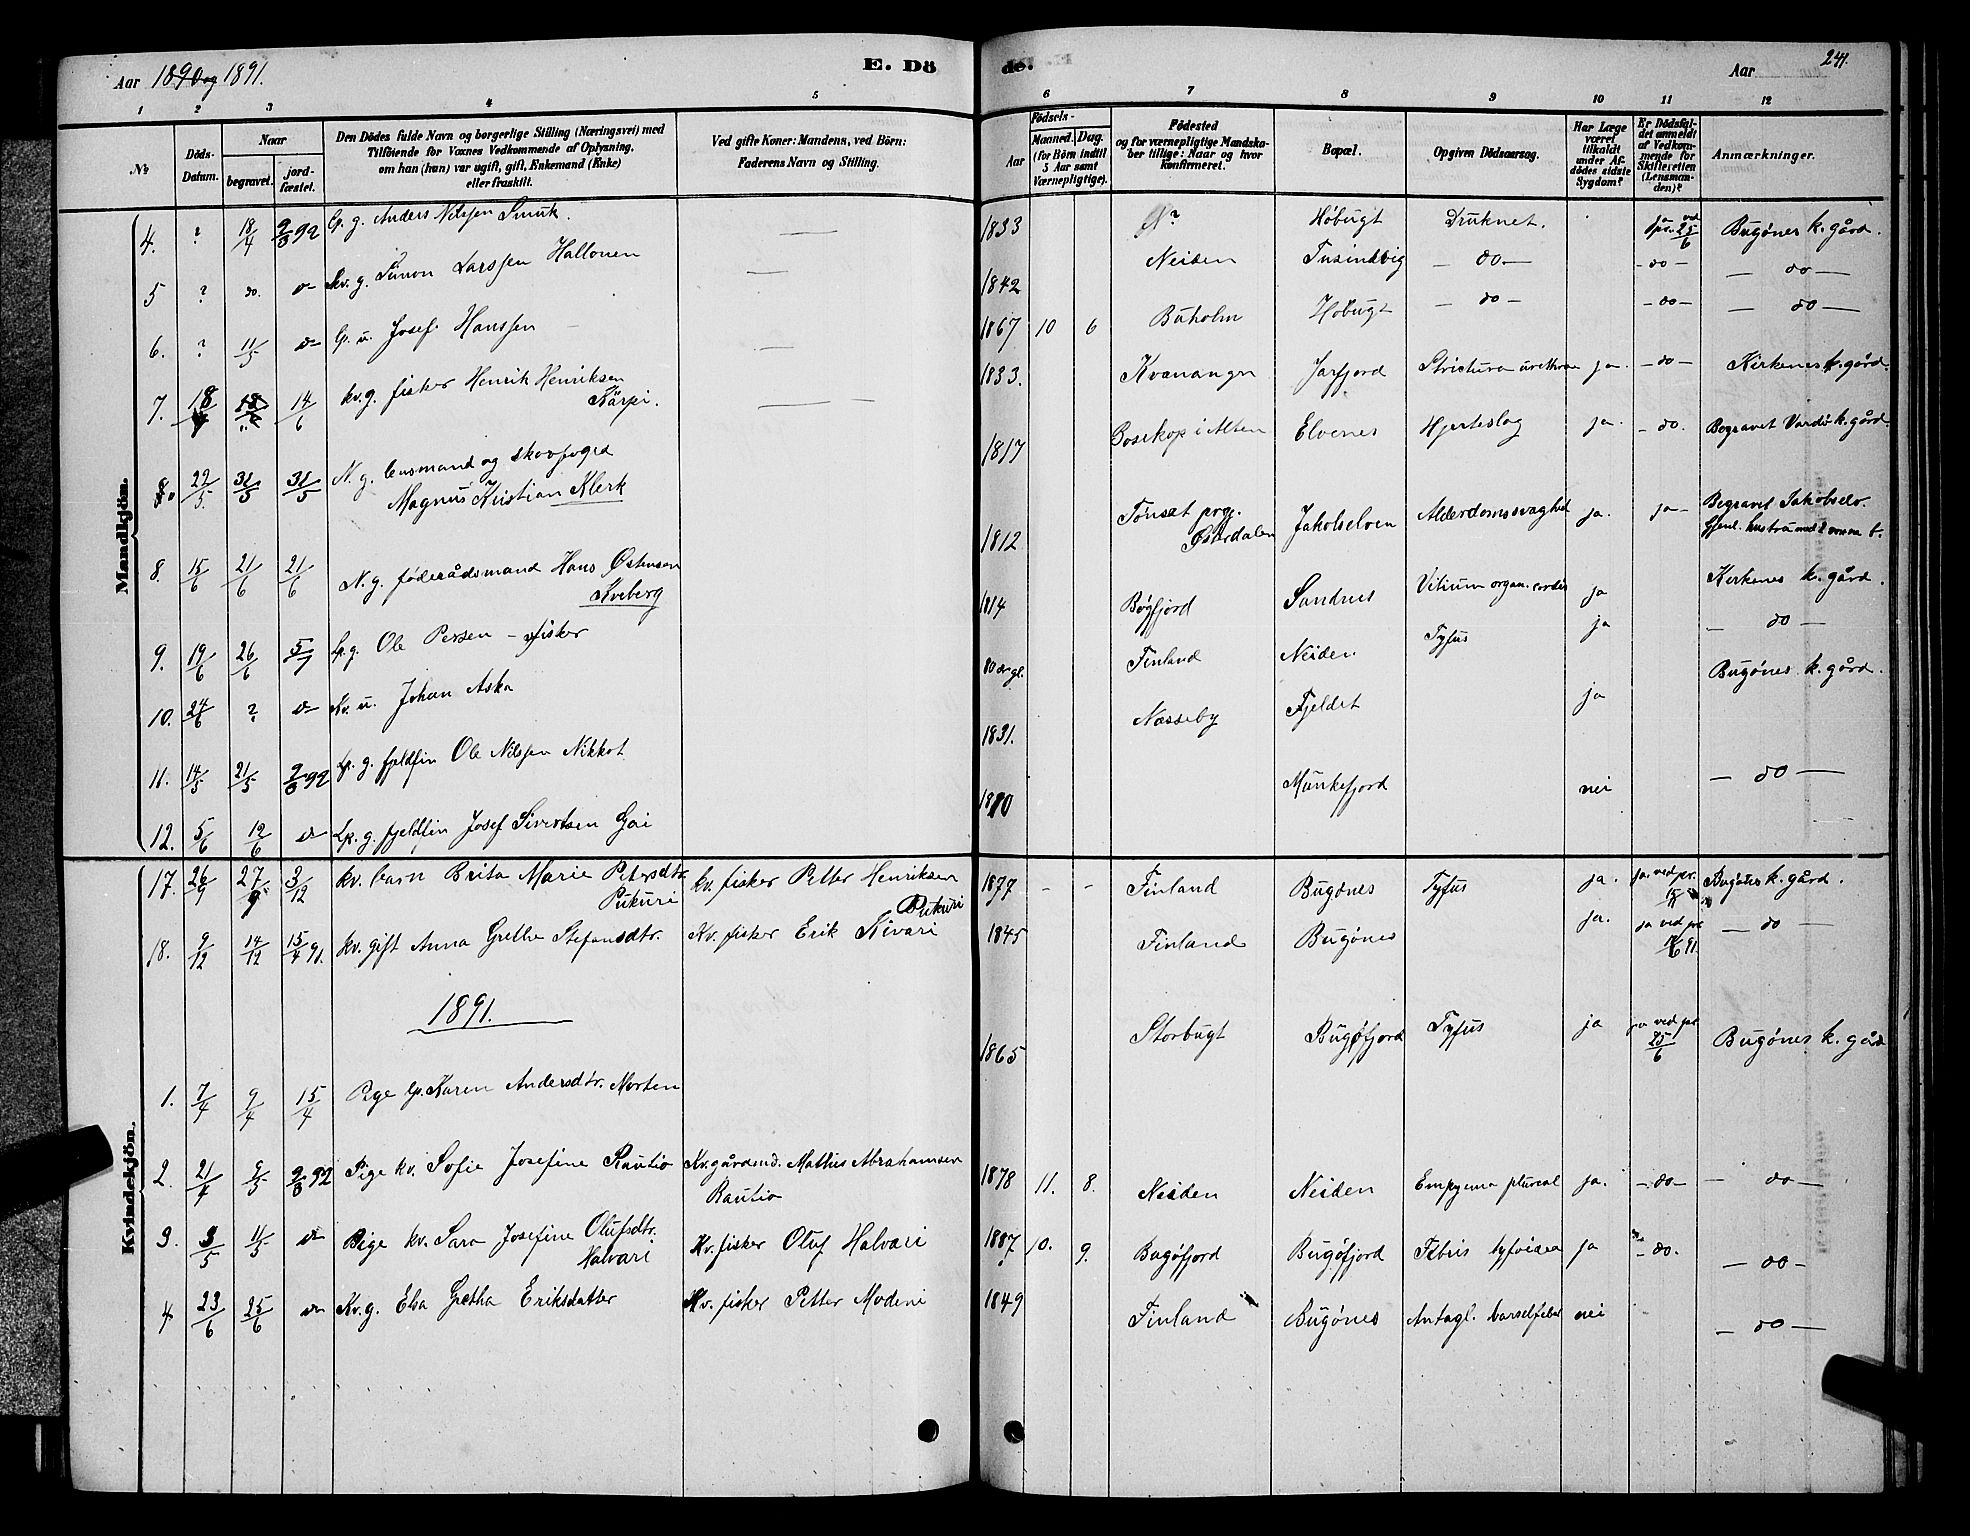 Aar 1890 og 1891.
E. Dö
de.
Aar
241.
1 2 3 4 5 6 7 8 9 10 11 12
No
Döds-Datum.
Naar
begravet.
jord-fæstet.
Den Dödes fulde Navn og borgerlige Stilling (Næringsvei) med
Tilföiende for Voxnes Vedkommende af Oplysning,
om han (hun) var ugift, gift, Enkemand (Enke)
eller fraskilt.
Ved gifte Koner: Mandens, ved Börn:
Faderens Navn og Stilling.
Födsels-
Aar
Maaned. Dag.
(for Börn indtil
5 Aar samt
Værnepligtige).
Födested
og for værnepligtige Mandska-
ber tillige: Naar og hvor
konfirmeret.
Bopæl.
Opgiven Dödsaarsag.
Har Læge
været
tilkaldt
under Af-
dödes sidste
Sygdom?
Er Dödsfal-
det anmeldt
af Vedkom-
mende for
Skifteretten
(Lensman-
den)?
Anmærkninger.
Mandkjön.
4. ? 18/4 2/8 92 Lp. g. Anders Nilssen Smuk. — 1833 ? Høbugt Druknet. ja ved pr. 25/6 Bugønes k. gård.
5 ? do. do Kv. g. Simon Larssen Hallonen — 1842 Neiden Tusindvig — do — — do — — do —
6. ? 11/5 do Lp. u. Josef Hanssen — 1867 10 6 Buholm Høbugt — do — — do — — do —
7. 18 14/6 kv. g. fisker Henrik Henriksen Kärpi. — 1833. Kvænangen Jarfjord Strictura urethrae ja. — do — Kirkenes k. gård.
8. 22/5. 31/5 31/5 N. g. lensmand og skovfoged
Magnus Kristian Klerk 1817 Bosekop i Alten Elvenes Hjerteslag ja. — do. Begravet Vardø k. gård
8. 15/6 21/6 21/6 N. g. føderådsmand Hans Østensen
Kveberg 1812 Tønset prg. Østerdalen Jakobselven Alderdomssvaghed ja. ja — Begravet Jakobselv.
9. 19/6 26/6 5/7 Lp. g. Ole Persen — fisker 1814 Bøgfjord Sandnes Vitium organ. cordis ja Kirkenes k. gård.
10. 24/6 ? do Kv. u. Johan Aska 80 år gl. Finland Neiden. Tyfus ja — do —
11. 14/5 21/5 2/8 92 Lp. g. fjeldfin Ole Nilssen Nikkot 1831. Næsseby Fjeldet ja Bugønes k. gård.
12. 5/6 12/6 do Lp. g. fjeldfin Josef Sivertsen Gai 1810 Munkefjord nei — do —
Kvindekjön.
17. 26/9 27/9 3/12 kv. barn Brita Marie Petersdtr. Pukuri kv. fisker Petter Henriksen Pukuri 1877 - - Finland Bugønes Tyfus ja. ja. ved pr. Bugønes k. gård.
18. 9/12 14/12 15/4 91. kv. gift Anna Grethe Stefansdtr. Kv. fisker Erik Kivari 1845 Finland Bugønes ja. ja ved pr. — do —
1891.
1. 7/4 9/4 15/4 Pige lp. Karen Andersdtr. Morten 1865 Storbugt Bugøfjord Tyfus ja ja ved pr. 25/6 Bugønes k. gård
2. 21/4 9/5 2/8 92 Pige kv. Sofie Josefine Rautio Kv. gårdmd. Mathis Abrahamsen
Rautio 1878 11. 8. Neiden Neiden Empyema plureal ja. — do — — do —
3. 3/5 11/5 do Pige kv. Sara Josefine Olufsdtr.
Halvari Kv. fisker Oluf Halvari 1887 10. 9. Bugøfjord Bugøfjord Febris tyfoidea ja — do. — do —
4 23/6 25/6 do Kv. g. Elsa Gretha Eriksdatter Kv. fisker Petter Modeni 1849 Finland Bugønes Antagl. barselfeber nei — do —